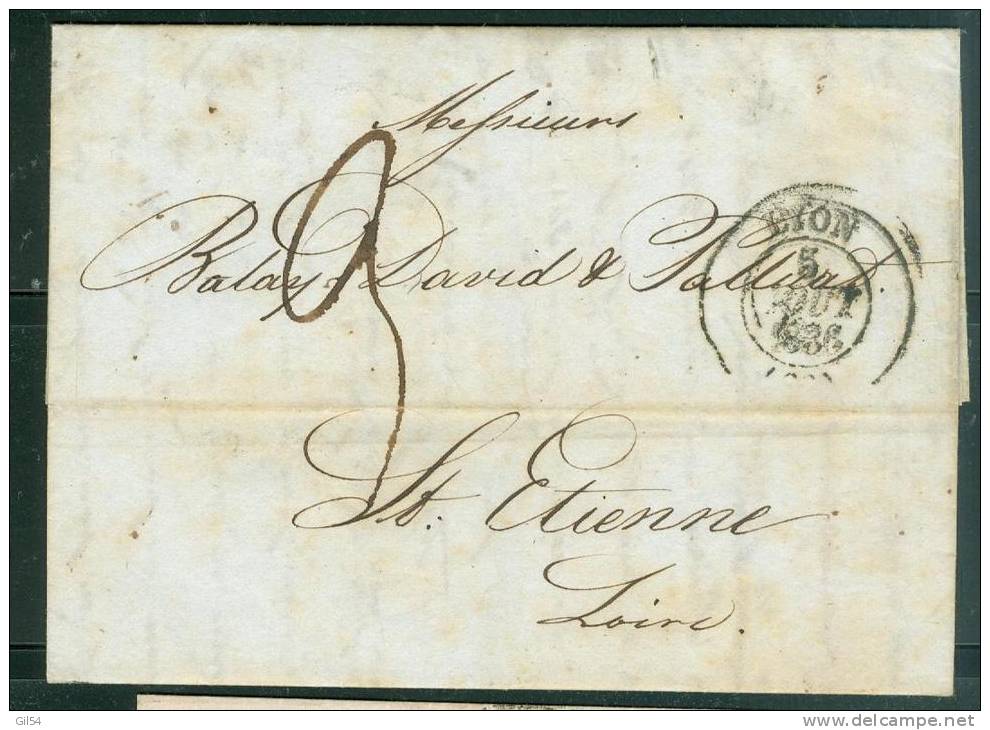 Messieurs
Balay David & Palluat.
St. Etienne
Loire.
LYON
5
AOUT
1836
Gil54
www.delcampe.net